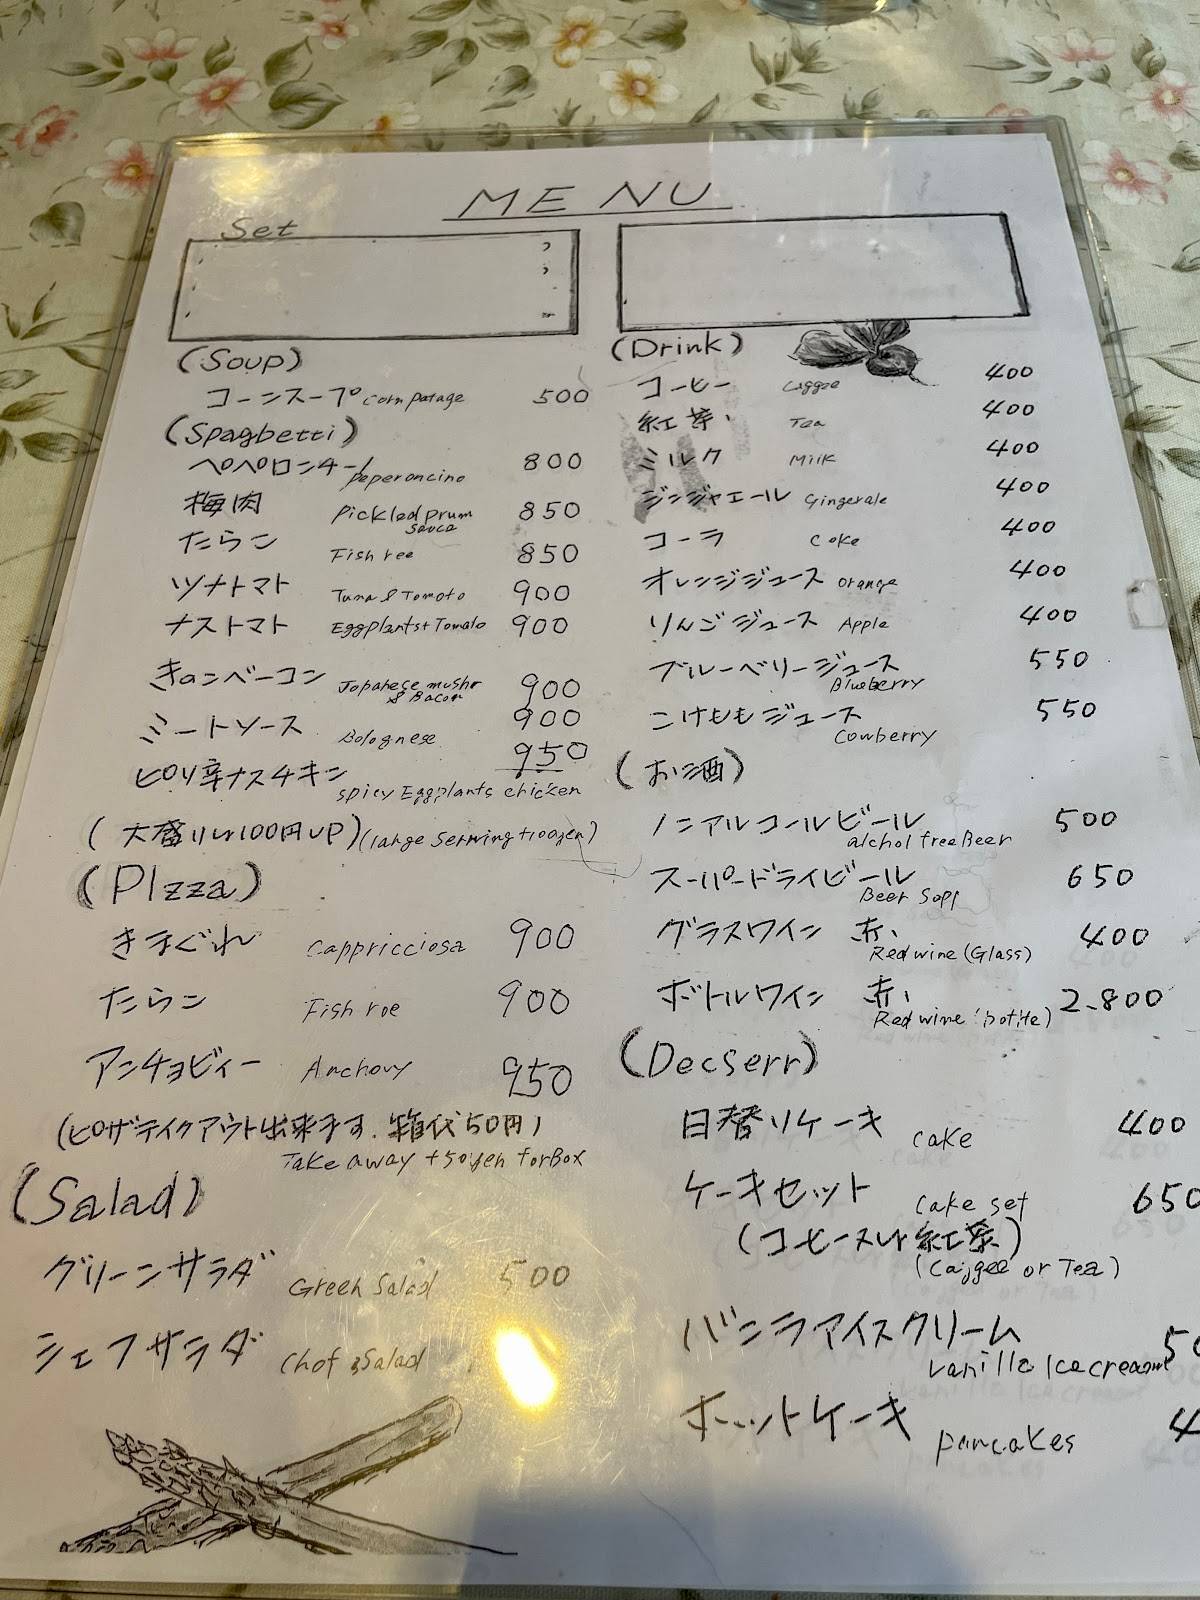 MENU
Set
(Soup)
コーンスープ corn patage 500
(Spagbetti)
ペペロンチーノ peperoncino 800
梅肉 pickled prum sauce 850
たらこ Fish roe 850
ツナトマト Tuna & Tomoto 900
ナストマト Eggplants+Tomato 900
きのこベーコン Japanese mushr & Bacon 900
ミートソース Bolognese 900
ピリ辛ナスチキン spicy Eggplants chicken 950
(大盛りは100円UP) (large serwing
(PIzza)
きまぐれ cappricciosa 900
たらこ Fish roe 900
アンチョビィー Anchovy 950
(ピザテイクアウト出来ます.箱代50円)
Take away +50yen forBox
(Salad)
グリーンサラダ Green Salad 500
シェフサラダ Chof,Salad
(Drink)
コーヒー 400
紅茶 Tea 400
ミルク Milk 400
ジンジャエール Gingerale 400
コーラ Coke 400
オレンジジュース orange 400
りんごジュース Apple 400
ブルーベリージュース Blueberry 550
こけももジュース Cowberry 550
(お酒)
ノンアルコールビール alchol freeBeer 500
スーパードライビール Beer 650
グラスワイン 赤 Red wine (Glass) 400
ボトルワイン 赤 Red wine 2.800
(Decserr)
日替りケーキ cake 400
ケーキセット cake set 650
(コーヒー又は紅茶)
or Tea)
バニラアイスクリーム vanilla Icecreamt
ホットケーキ pancakes